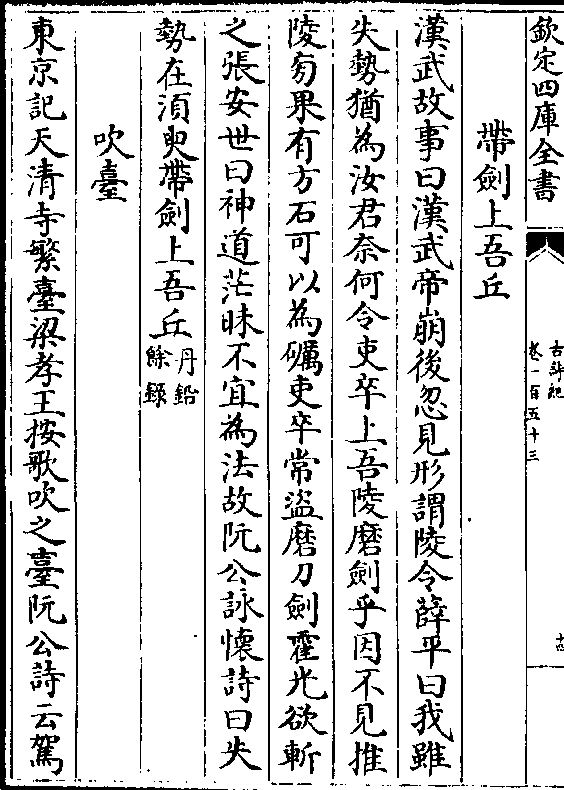 欽定四庫全書
古詩紀
卷一百五十三
十四
帶劍上吾丘
漢武故事曰漢武帝崩後忽見形謂陵令薛平曰我雖
失勢猶為汝君奈何令吏卒上吾陵磨劍乎因不見推
陵旁果有方石可以為礪吏卒常盜磨刀劍霍光欲斬
之張安世曰神道茫昧不宜為法故阮公詠懷詩曰失
勢在湏臾帶劍上吾丘丹鉛
餘録
吹臺
東京記天清寺繁臺梁孝王按歌吹之臺阮公詩云駕